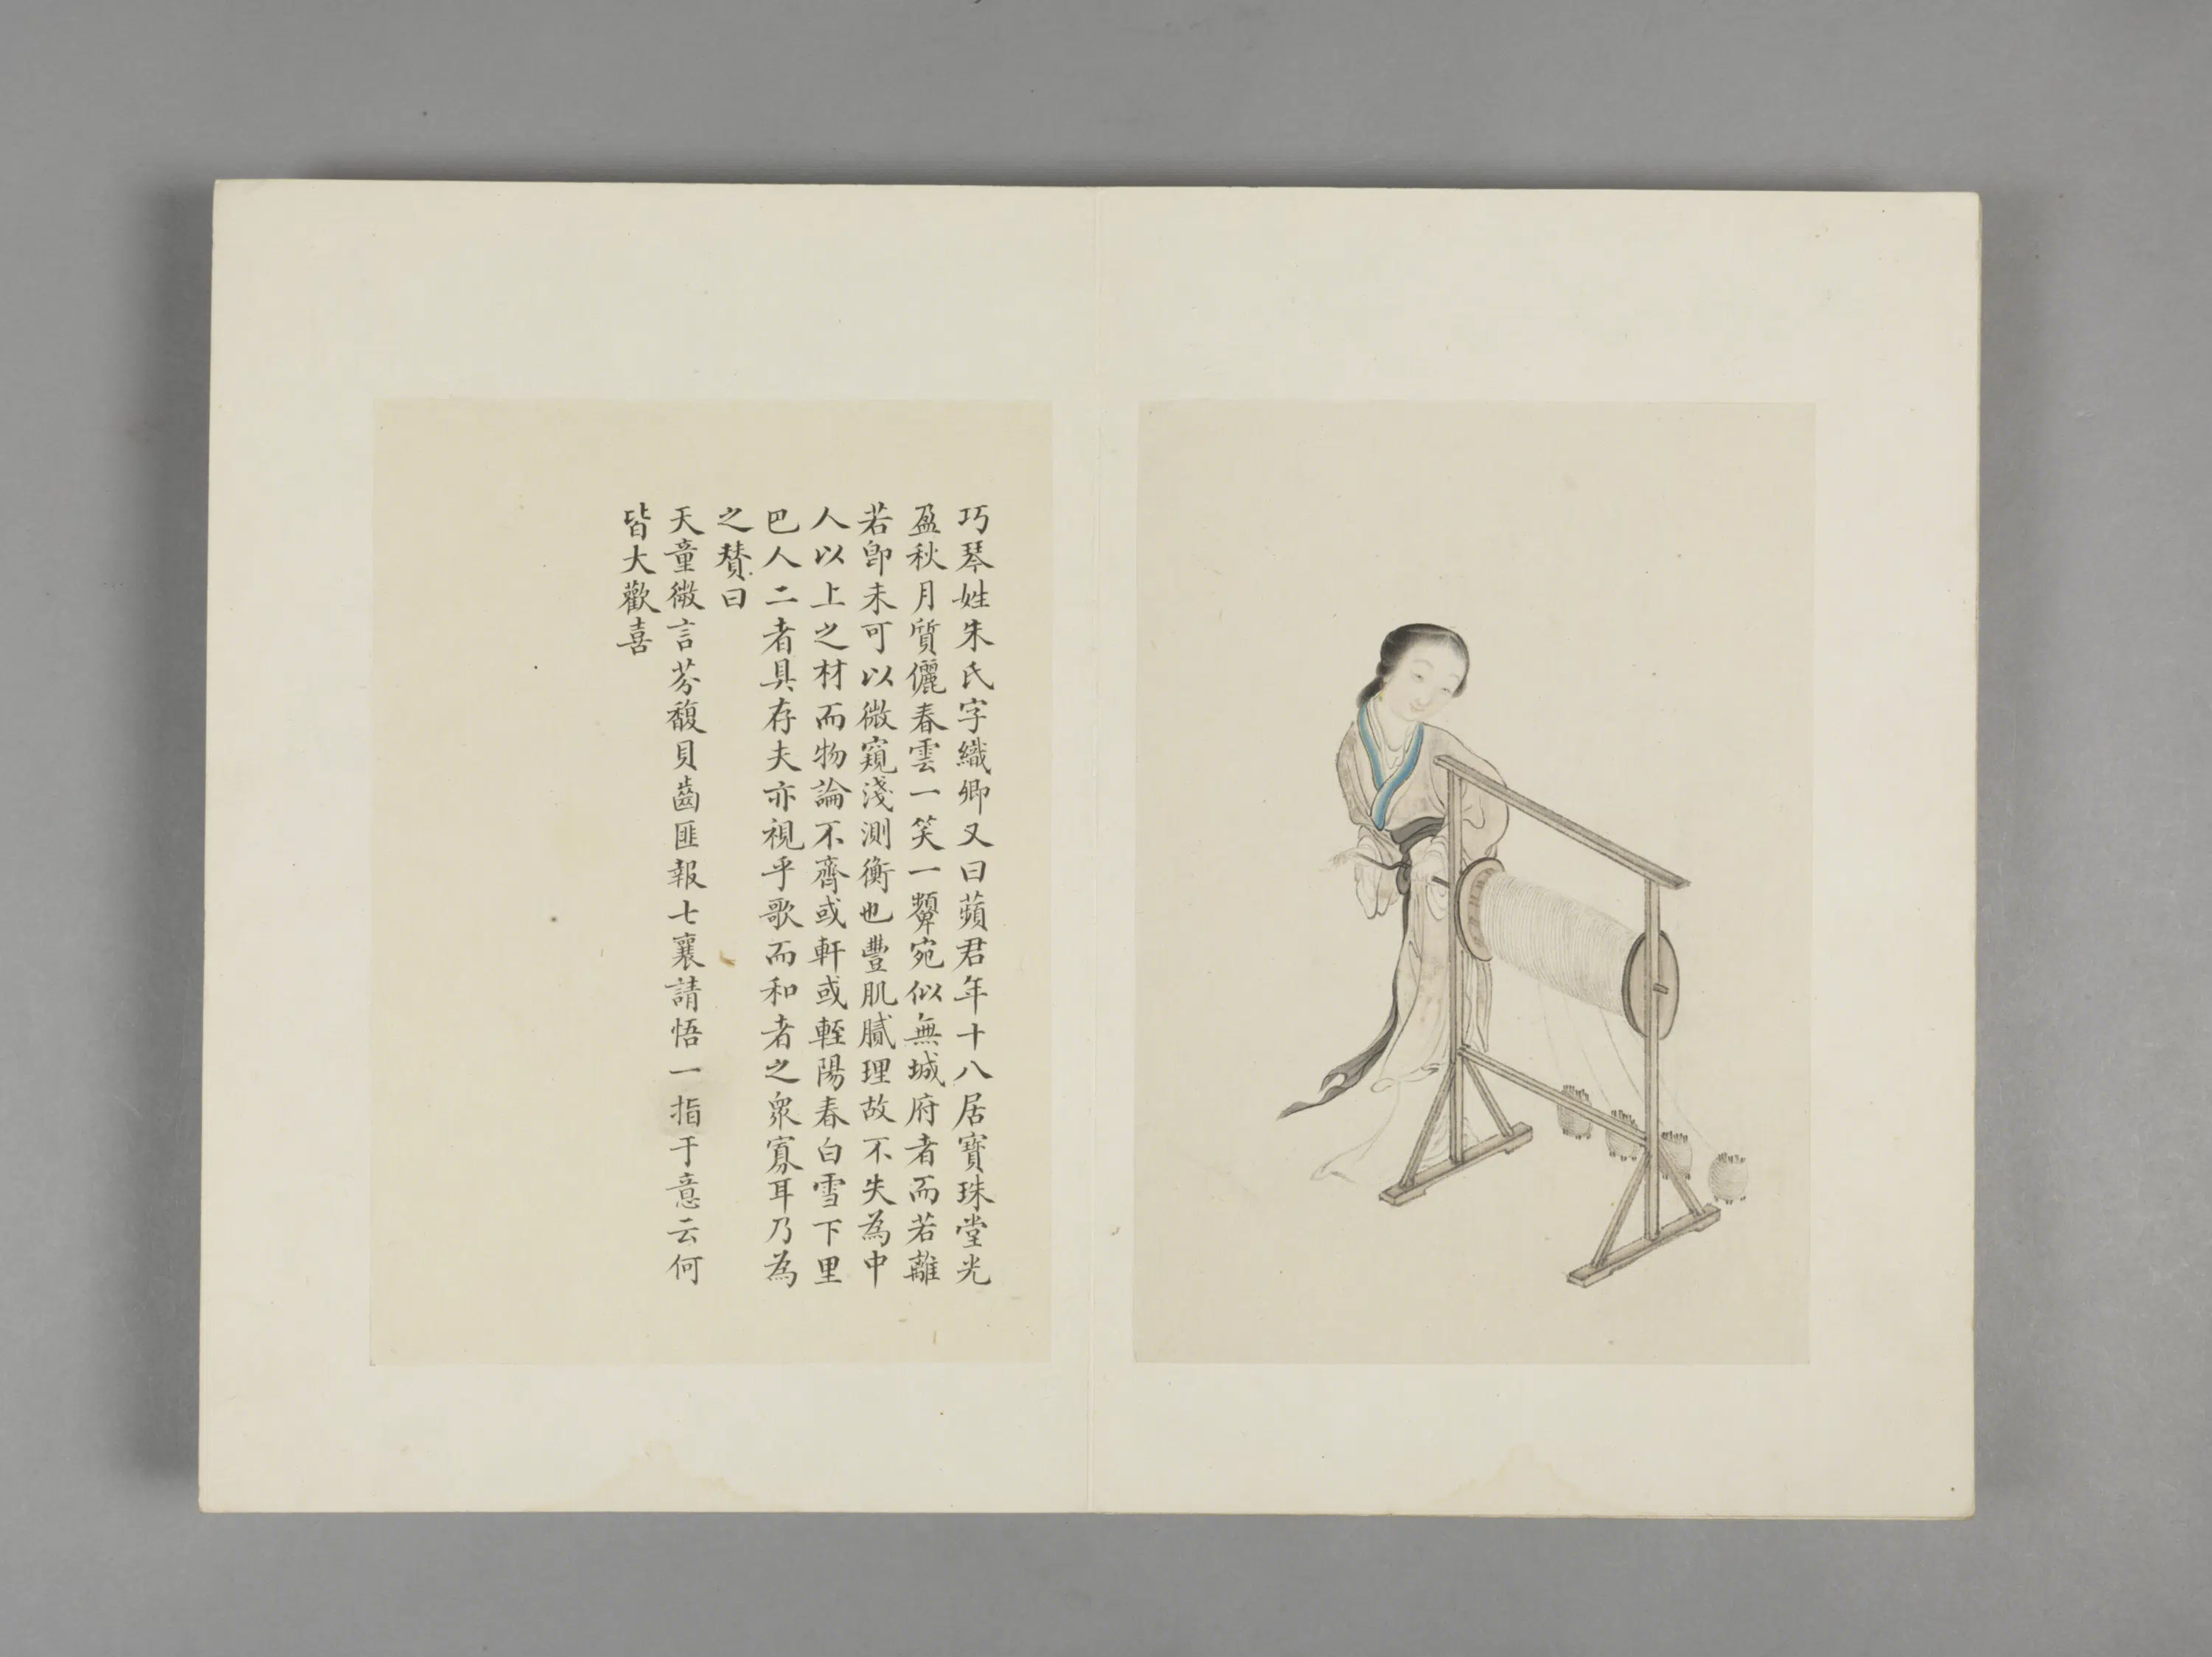 巧琴姓朱氏字織卿又曰蘋君年十八居寶珠堂光
盈秋月質儷春雲一笑一顰宛似無城府者而若離
若卽未可以微窺淺測衡也豐肌膩理故不失為中
人以上之材而物論不齊或軒或輊陽春白雪下里
巴人二者具存夫亦視乎歌而和者之衆寡耳乃為
之贊曰
天童微言芬馥貝齒匪報七襄請悟一指于意云何
皆大歡喜